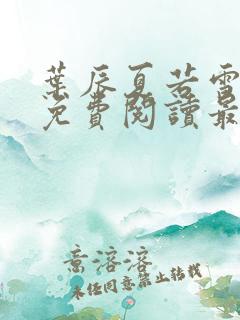 葉辰夏若雪
免費閱讀最
意溶溶
未经同意禁止转载